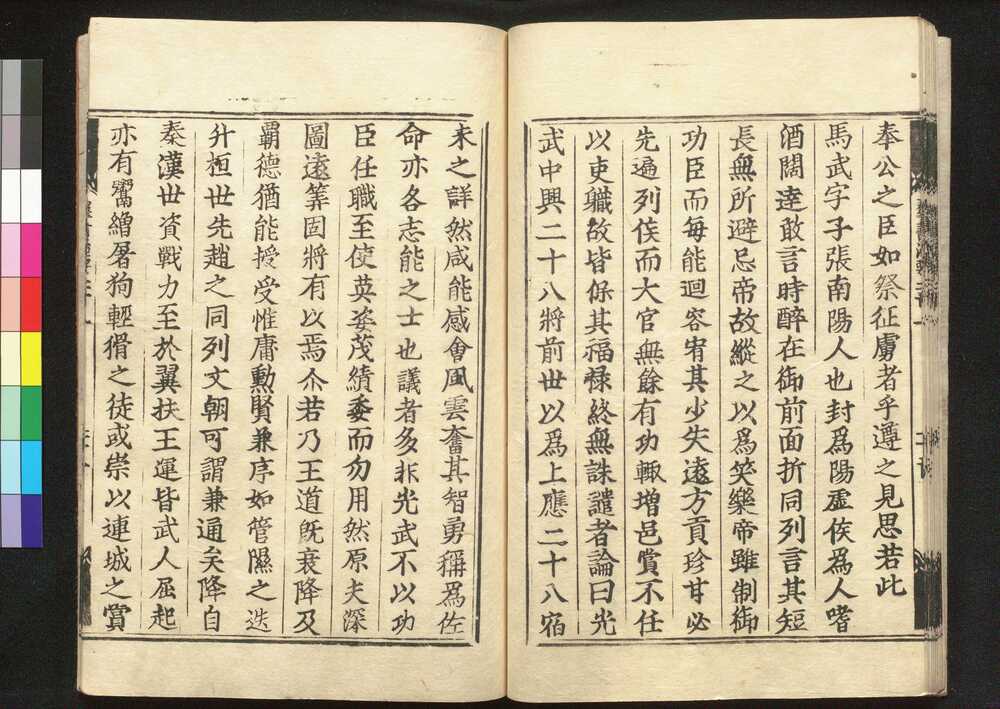 奉公之臣如祭征虜者乎遵之見思若此
馬武字子張南陽人也封爲陽虛侯爲人嗜
酒闊達敢言時醉在御前面折同列言其短
長無所避忌帝故縱之以爲笑樂帝雖制御
功臣而每能迴容宥其少失遠方貢珍甘必
先遍列侯而大官無餘有功輙增邑賞不任
以吏職故皆保其福禄終無誅譴者論曰光
武中興二十八將前世以爲上應二十八宿
未之詳然咸能感會風雲奮其智勇稱爲佐
命亦各志能之士也議者多非光武不以功
臣任職至使英姿茂績委而勿用然原夫深
圖遠筭固將有以焉尒若乃王道既衰降及
霸德猶能授受惟庸勳賢兼序如管隰之迭
升桓世先趙之同列文朝可謂兼通矣降自
秦漢世資戰力至於翼扶王運皆武人屈起
亦有鬻繒屠狗輕猾之徒或崇以連城之賞